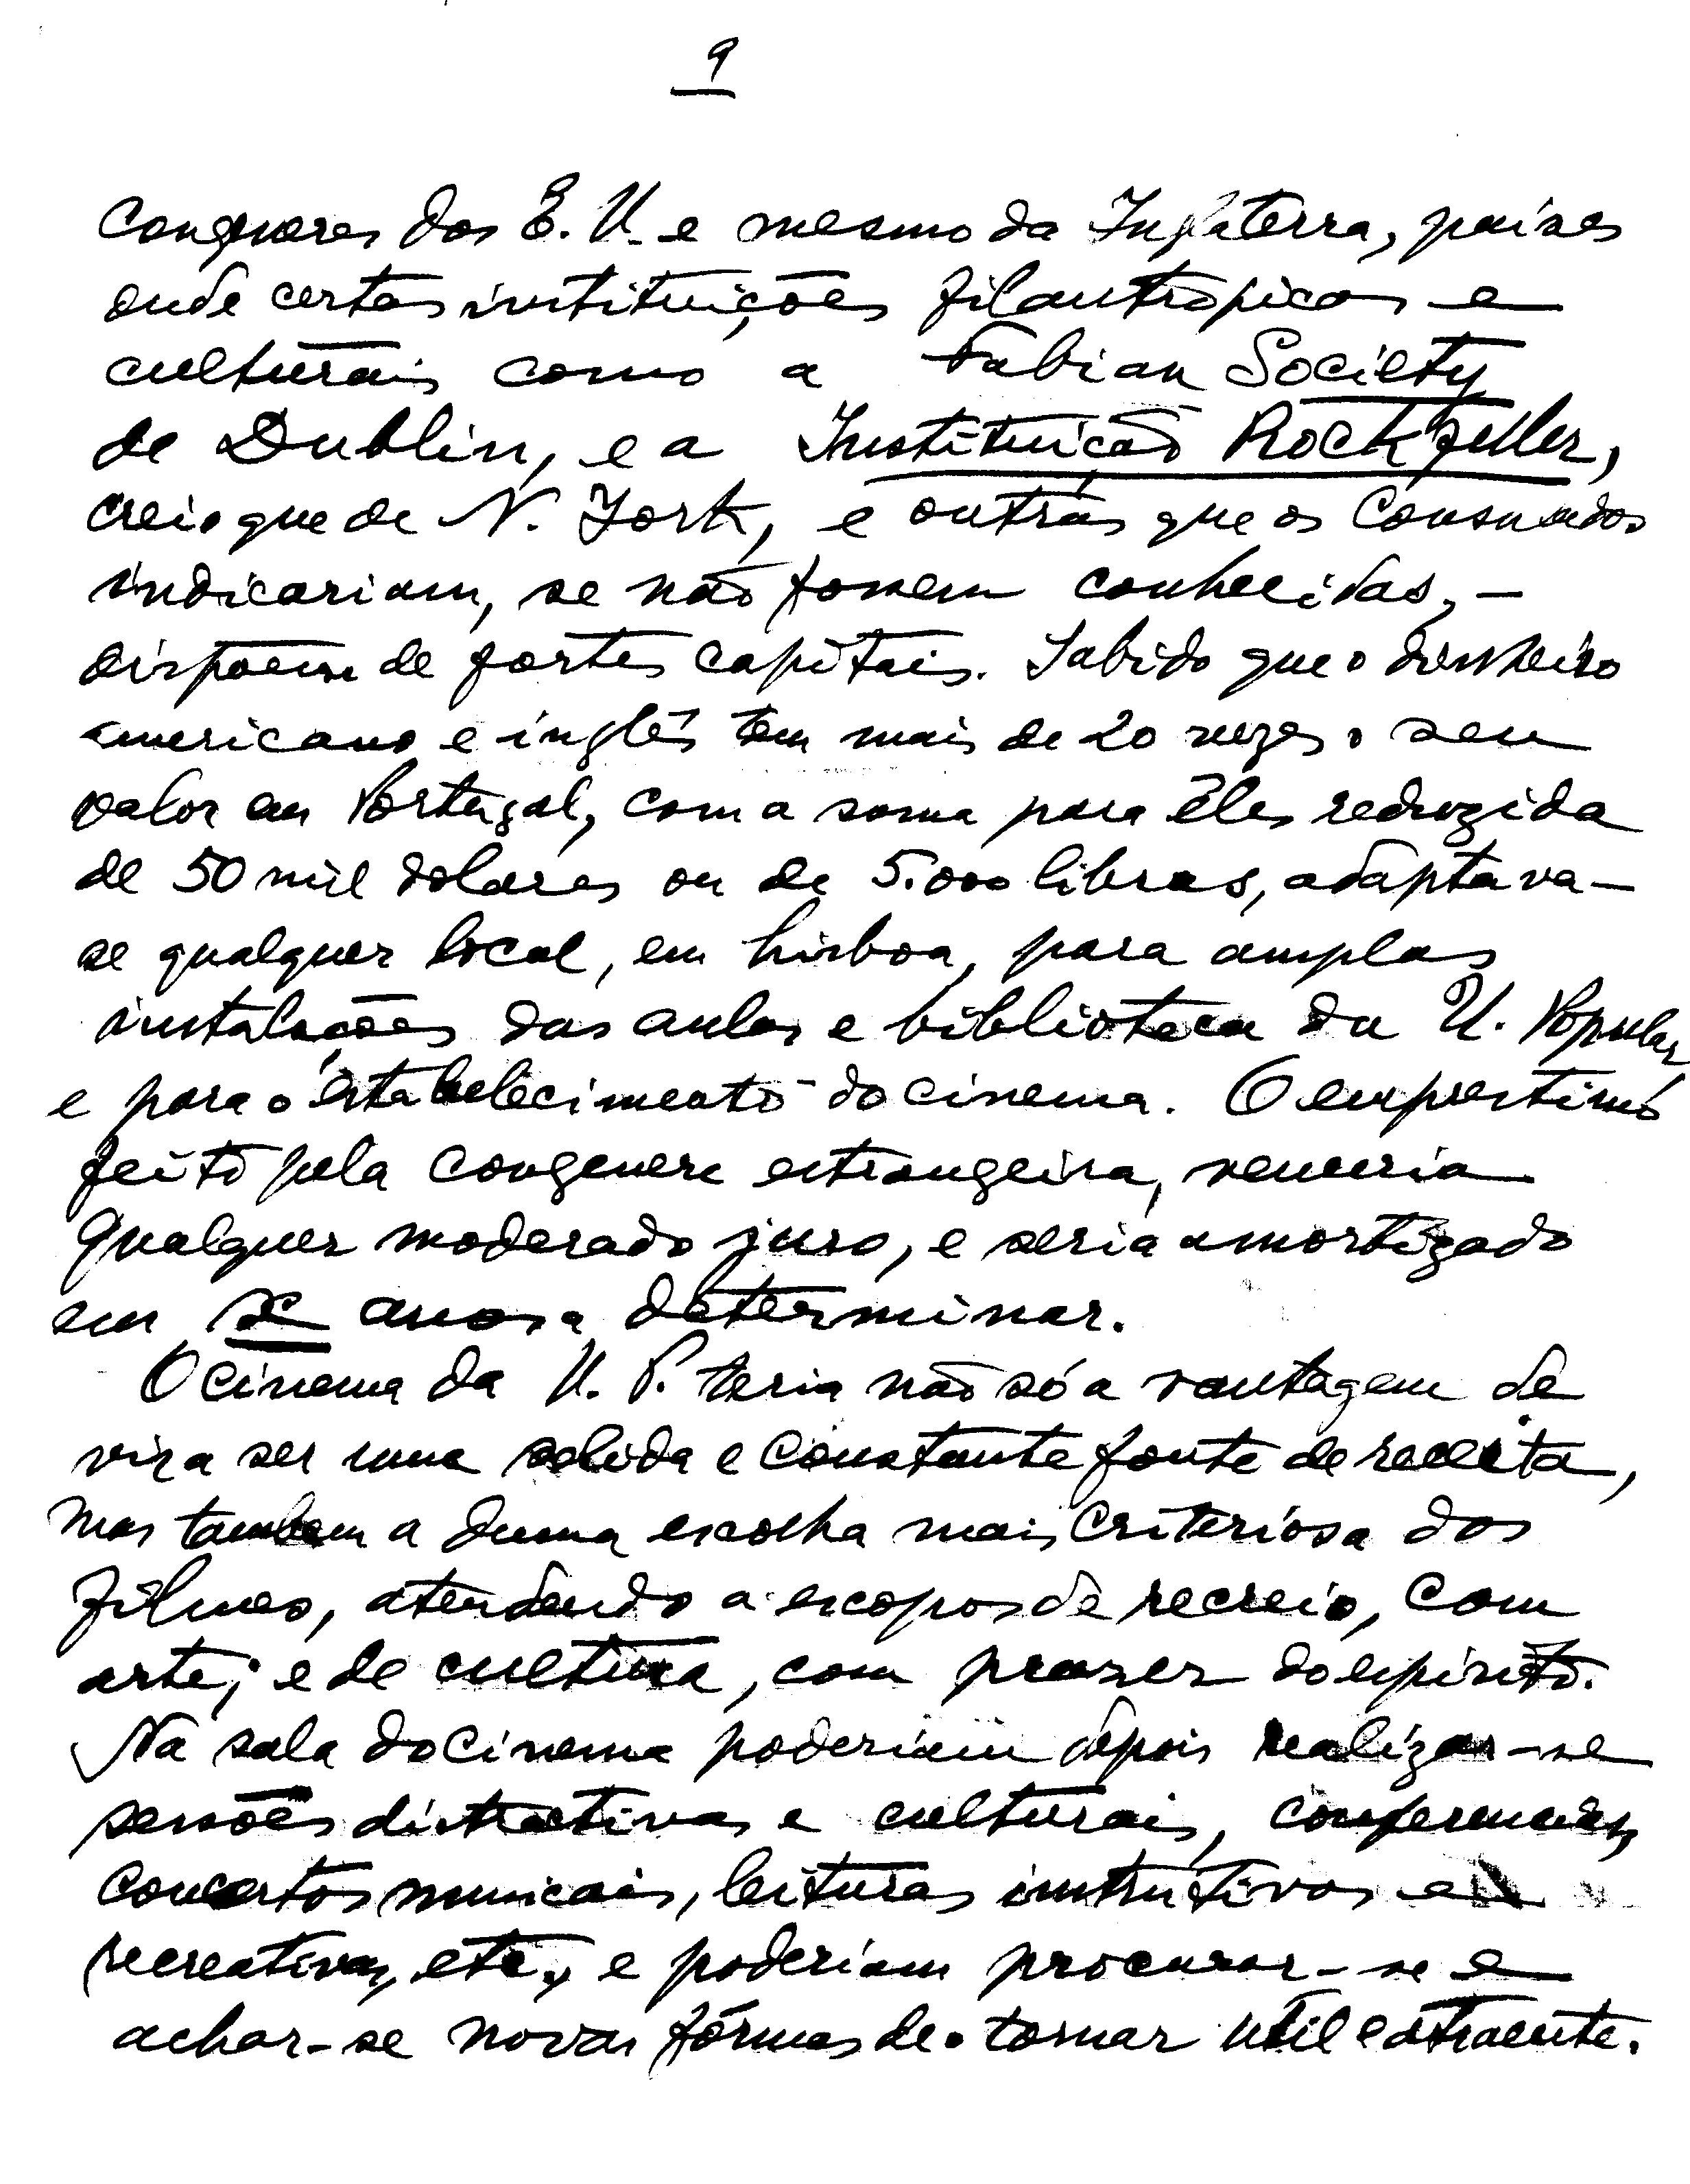 9
congeneres dos E. U. e mesmo da Inglaterra, paises
onde certas instituições filantropicas e
culturais como a Fabian Society
de Dublin, e a Instituicão Rockfeller,
creio que de N. York, e outras que os Consulados
indicariam, se não fossem conhecidas, -
dispõem de fortes capitais. Sabido que o dinheiro
americano e inglês tem mais de 20 vezes o seu
valor em Portugal, com a soma para êles reduzida
de 50 mil dolares ou de 5.000 libras, adaptava-
se qualquer local, em Lisboa, para amplas
instalações das aulas e biblioteca da U. Popular
e para o estabelecimento do cinema. O emprestimo
feito pela congenere estrangeira, venceria
qualquer moderado juro, e seria amortizado
em x anos a determinar.
O cinema da U. P. teria não só a vantagem de
vir a ser uma solida e constante fonte de receita,
mas tambem a duma escolha mais criteriosa dos
filmes, atendendo a escopos de recreio, com
arte; e de cultura, com prazer do espirito.
Na sala do cinema poderiam depois realizar-se
sessões distractivas e culturais, conferencias,
concertos musicais, leituras instrutivas e
recreativas, etc., e poderiam procurar-se e
achar-se novas fórmas de o tornar util e atraente.